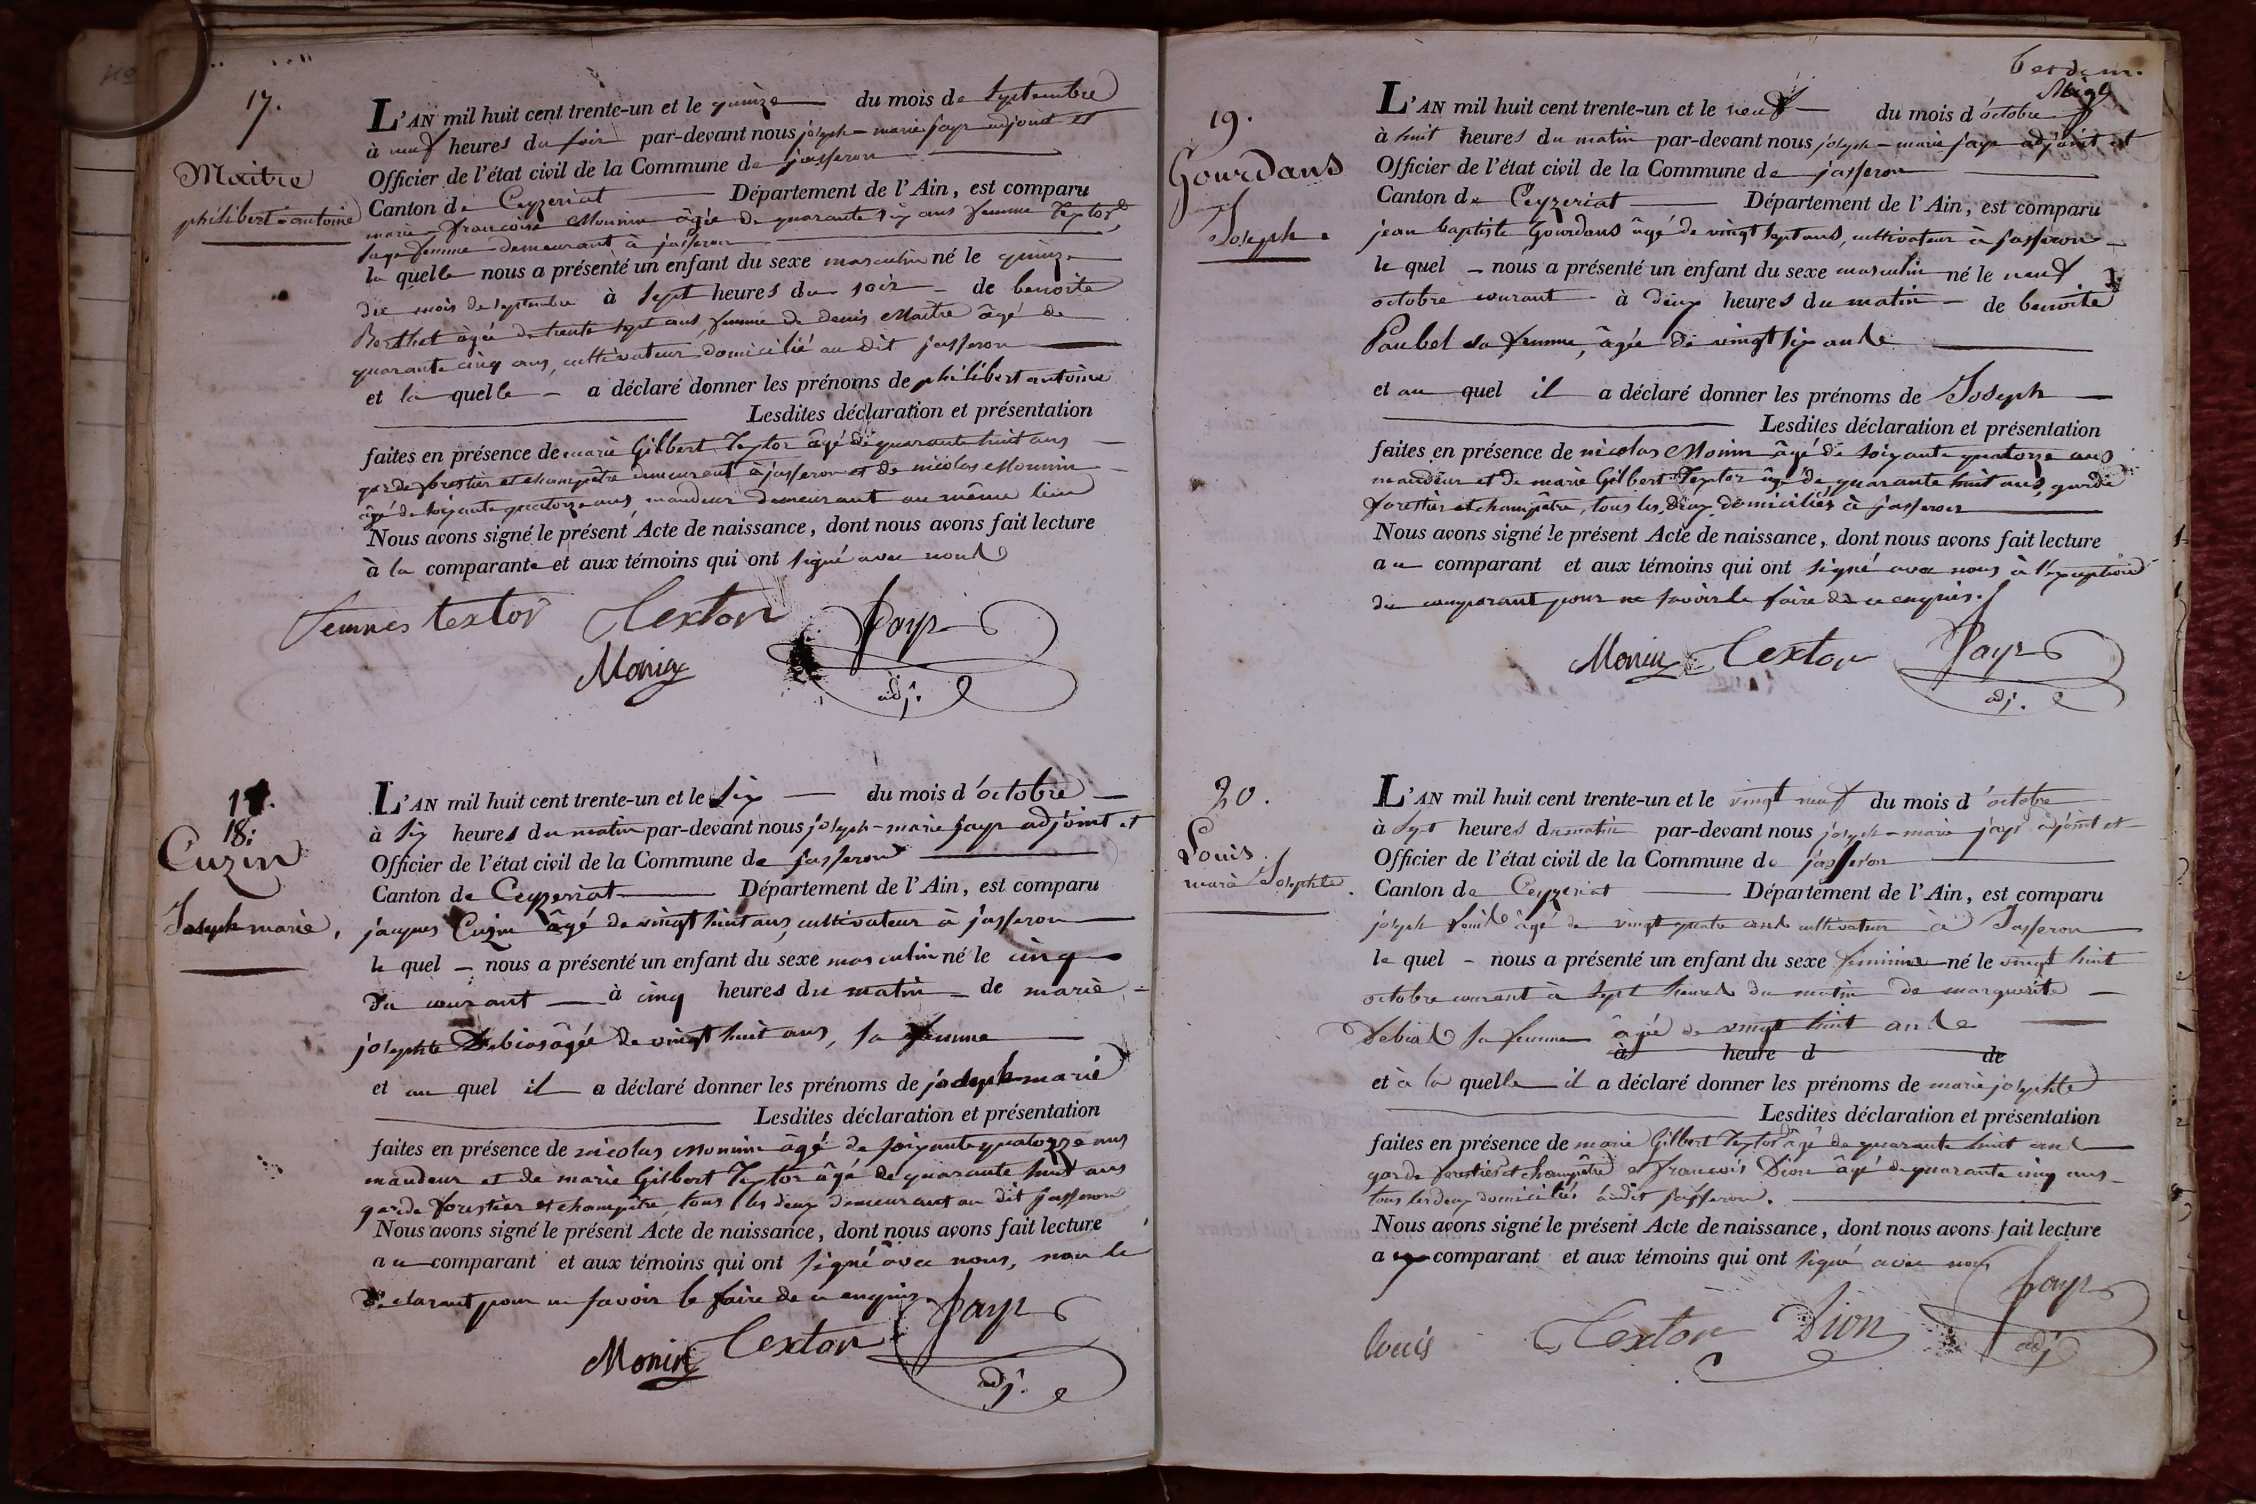 17.
Maitre
philibert=antoine
L'AN mil huit cent trente-un et le quinze du mois de Septembre
à neuf heures du soir par-devant nous joseph-marie fayr adjoint et
Officier de l'état civil de la Commune de jasseron
Canton de Ceyzeriat Département de l'Ain, est comparu
marie francoise Monnin âgée de quarante six ans femme Textor,
sage femme demeurant à jasseron
la quelle nous a présenté un enfant du sexe masculin né le quinze
du mois de septembre à sept heures du soir de benoite
Berthet âgée de trente sept ans femme de denis Maitre âgé de
quarante cinq ans, cultivateur domicilié au dit jasseron
et la quelle a déclaré donner les prénoms de philibert antoine
Lesdites déclaration et présentation
faites en présence de marie Gilbert Textor âgé de quarante huit ans
garde forestier et champêtre demeurant à jasseron et de nicolas Monnin
âgé de soixante quatorze ans mandeur demeurant au même lieu
Nous avons signé le présent Acte de naissance, dont nous avons fait lecture
à la comparante et aux témoins qui ont signé avec nous
femmes textor Textor fayr
Monin adj.
18:
Cuzin
Joseph marie,
L'AN mil huit cent trente-un et le six du mois d'octobre
à six heures du matin par-devant nous joseph-marie fayr adjoint et
Officier de l'état civil de la Commune de jasseron
Canton de Ceyzeriat Département de l'Ain, est comparu
jacques Cuzin âgé de vingt huit ans, cultivateur à jasseron
le quel nous a présenté un enfant du sexe masculin né le cinq
du courant à cinq heures du matin de marie
josephte Debias âgée de vingt huit ans, sa femme
et au quel il a déclaré donner les prénoms de joseph marie
Lesdites déclaration et présentation
faites en présence de nicolas monnin âgé de soixante quatorze ans
mandeur et de marie Gilbert Textor âgé de quarante huit ans
garde forestier et champêtre, tous les deux demeurant au dit jasseron
Nous avons signé le présent Acte de naissance, dont nous avons fait lecture
au comparant et aux témoins qui ont signé avec nous, non le
déclarant pour ne savoir le faire de ce enquis.
Monin Textor fayr
adj.
19.
Gourdans
Joseph.
L'AN mil huit cent trente-un et le neuf du mois d'octobre
à huit heures du matin par-devant nous joseph-marie fayr adjoint et
Officier de l'état civil de la Commune de jasseron
Canton de Ceyzeriat Département de l'Ain, est comparu
jean baptiste Gourdans âgé de vingt sept ans, cultivateur à jasseron
le quel nous a présenté un enfant du sexe masculin né le neuf
octobre courant à deux heures du matin de benoite
Paubel sa femme, âgée de vingt six ans
et au quel il a déclaré donner les prénoms de Joseph
Lesdites déclaration et présentation
faites en présence de nicolas Monin âgé de soixante quatorze ans
mandeur et de marie Gilbert Textor âgé de quarante huit ans, garde
forestier et champêtre, tous les deux domiciliés à jasseron
Nous avons signé le présent Acte de naissance, dont nous avons fait lecture
au comparant et aux témoins qui ont signé avec nous à l'exception
du comparant pour ne savoir le faire de ce enquis.
Monin Textor fayr
adj.
20.
Louis
marie Josephte.
L'AN mil huit cent trente-un et le vingt neuf du mois d'octobre
à sept heures du matin par-devant nous joseph-marie fayr adjoint et
Officier de l'état civil de la Commune de jasseron
Canton de Ceyzeriat Département de l'Ain, est comparu
joseph Louis âgé de vingt quatre ans cultivateur à Jasseron
le quel nous a présenté un enfant du sexe feminin né le vingt huit
octobre courant à sept heures du matin de marguerite
Debias sa femme âgée de vingt huit ans
à heure d de
et à la quelle il a déclaré donner les prénoms de marie josephte
Lesdites déclaration et présentation
faites en présence de marie Gilbert Textor âgé de quarante huit ans
garde forestier et champêtre et francois Dion âgé de quarante cinq ans
tous les deux domiciliés audit jasseron.
Nous avons signé le présent Acte de naissance, dont nous avons fait lecture
au comparant et aux témoins qui ont signé avec nous
louis Textor Dion fayr
adj